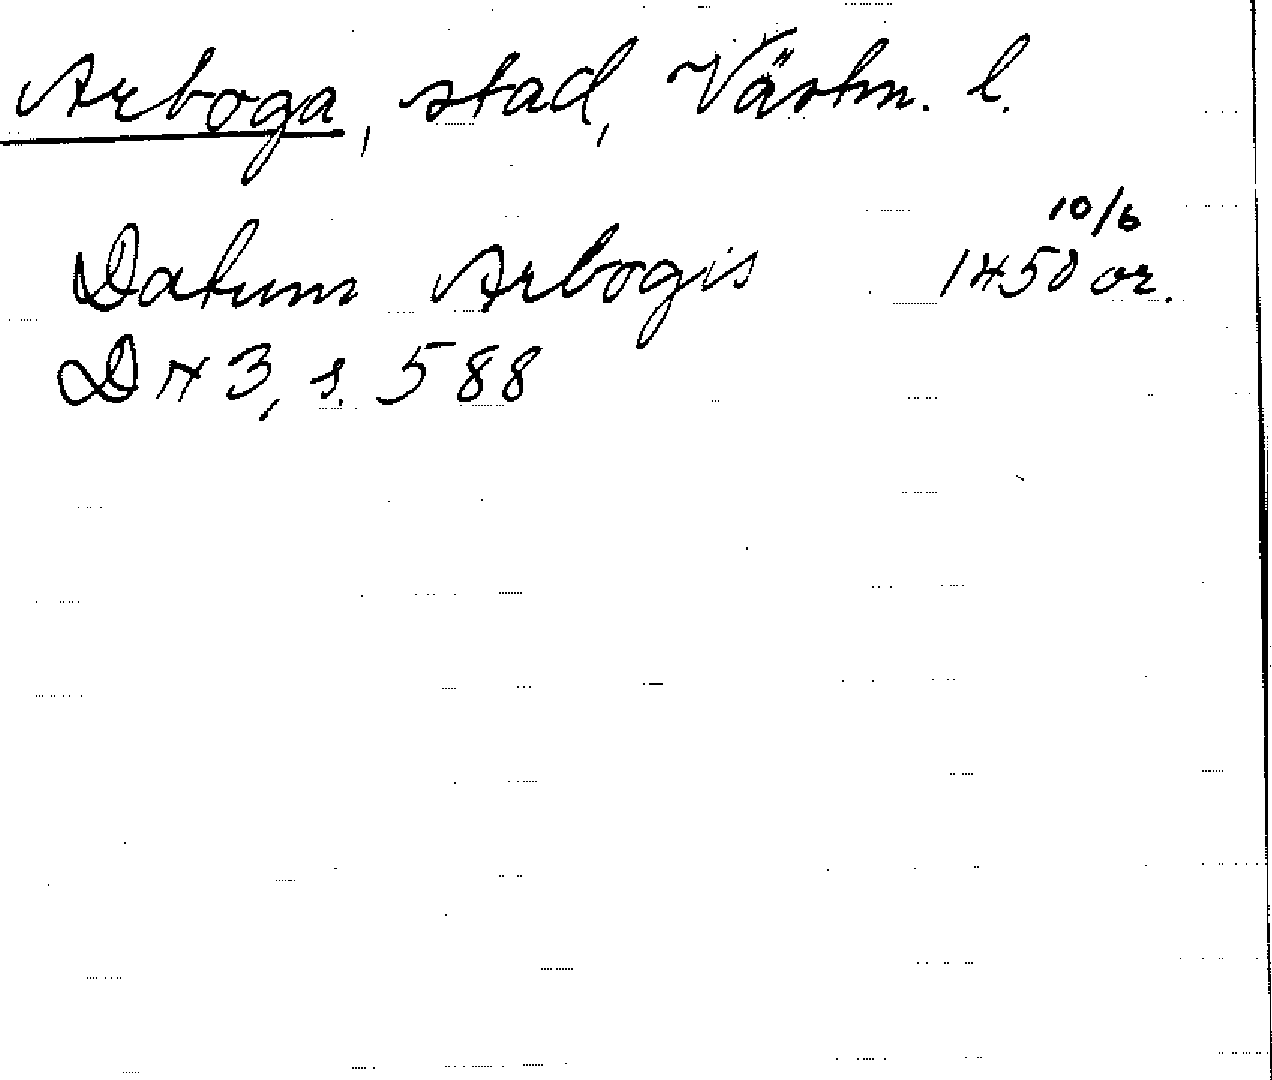 Arboga, stad, Västm. l.
10/6
Datum Arbogis 1450 or.
DN 3, s. 588